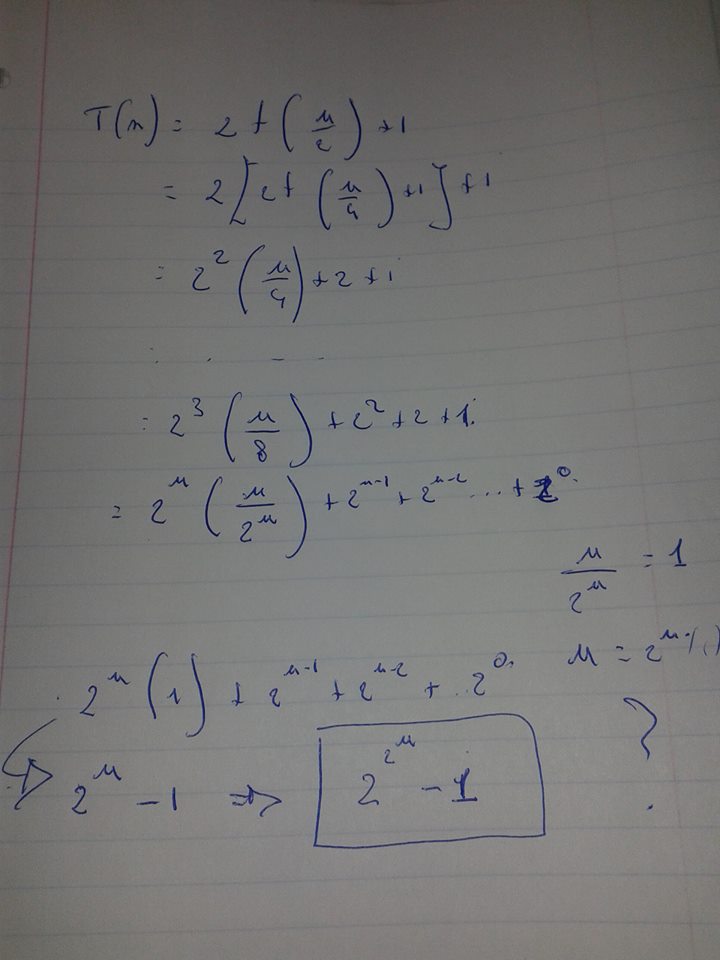 T(n) = 2 t (n/2) + 1
= 2 [2t (n/4) + 1] + 1
= 2^2 (n/4) + 2 + 1
. . - -
= 2^3 (n/8) + 2^2 + 2 + 1.
= 2^n (n/2^n) + 2^(n-1) + 2^(n-2) ... + 2^0.
n/2^n = 1
n = 2^n
2^n (1) + 2^(n-1) + 2^(n-2) + .. 2^0.
?
2^n - 1 ⇒ 2^(2^n) - 1